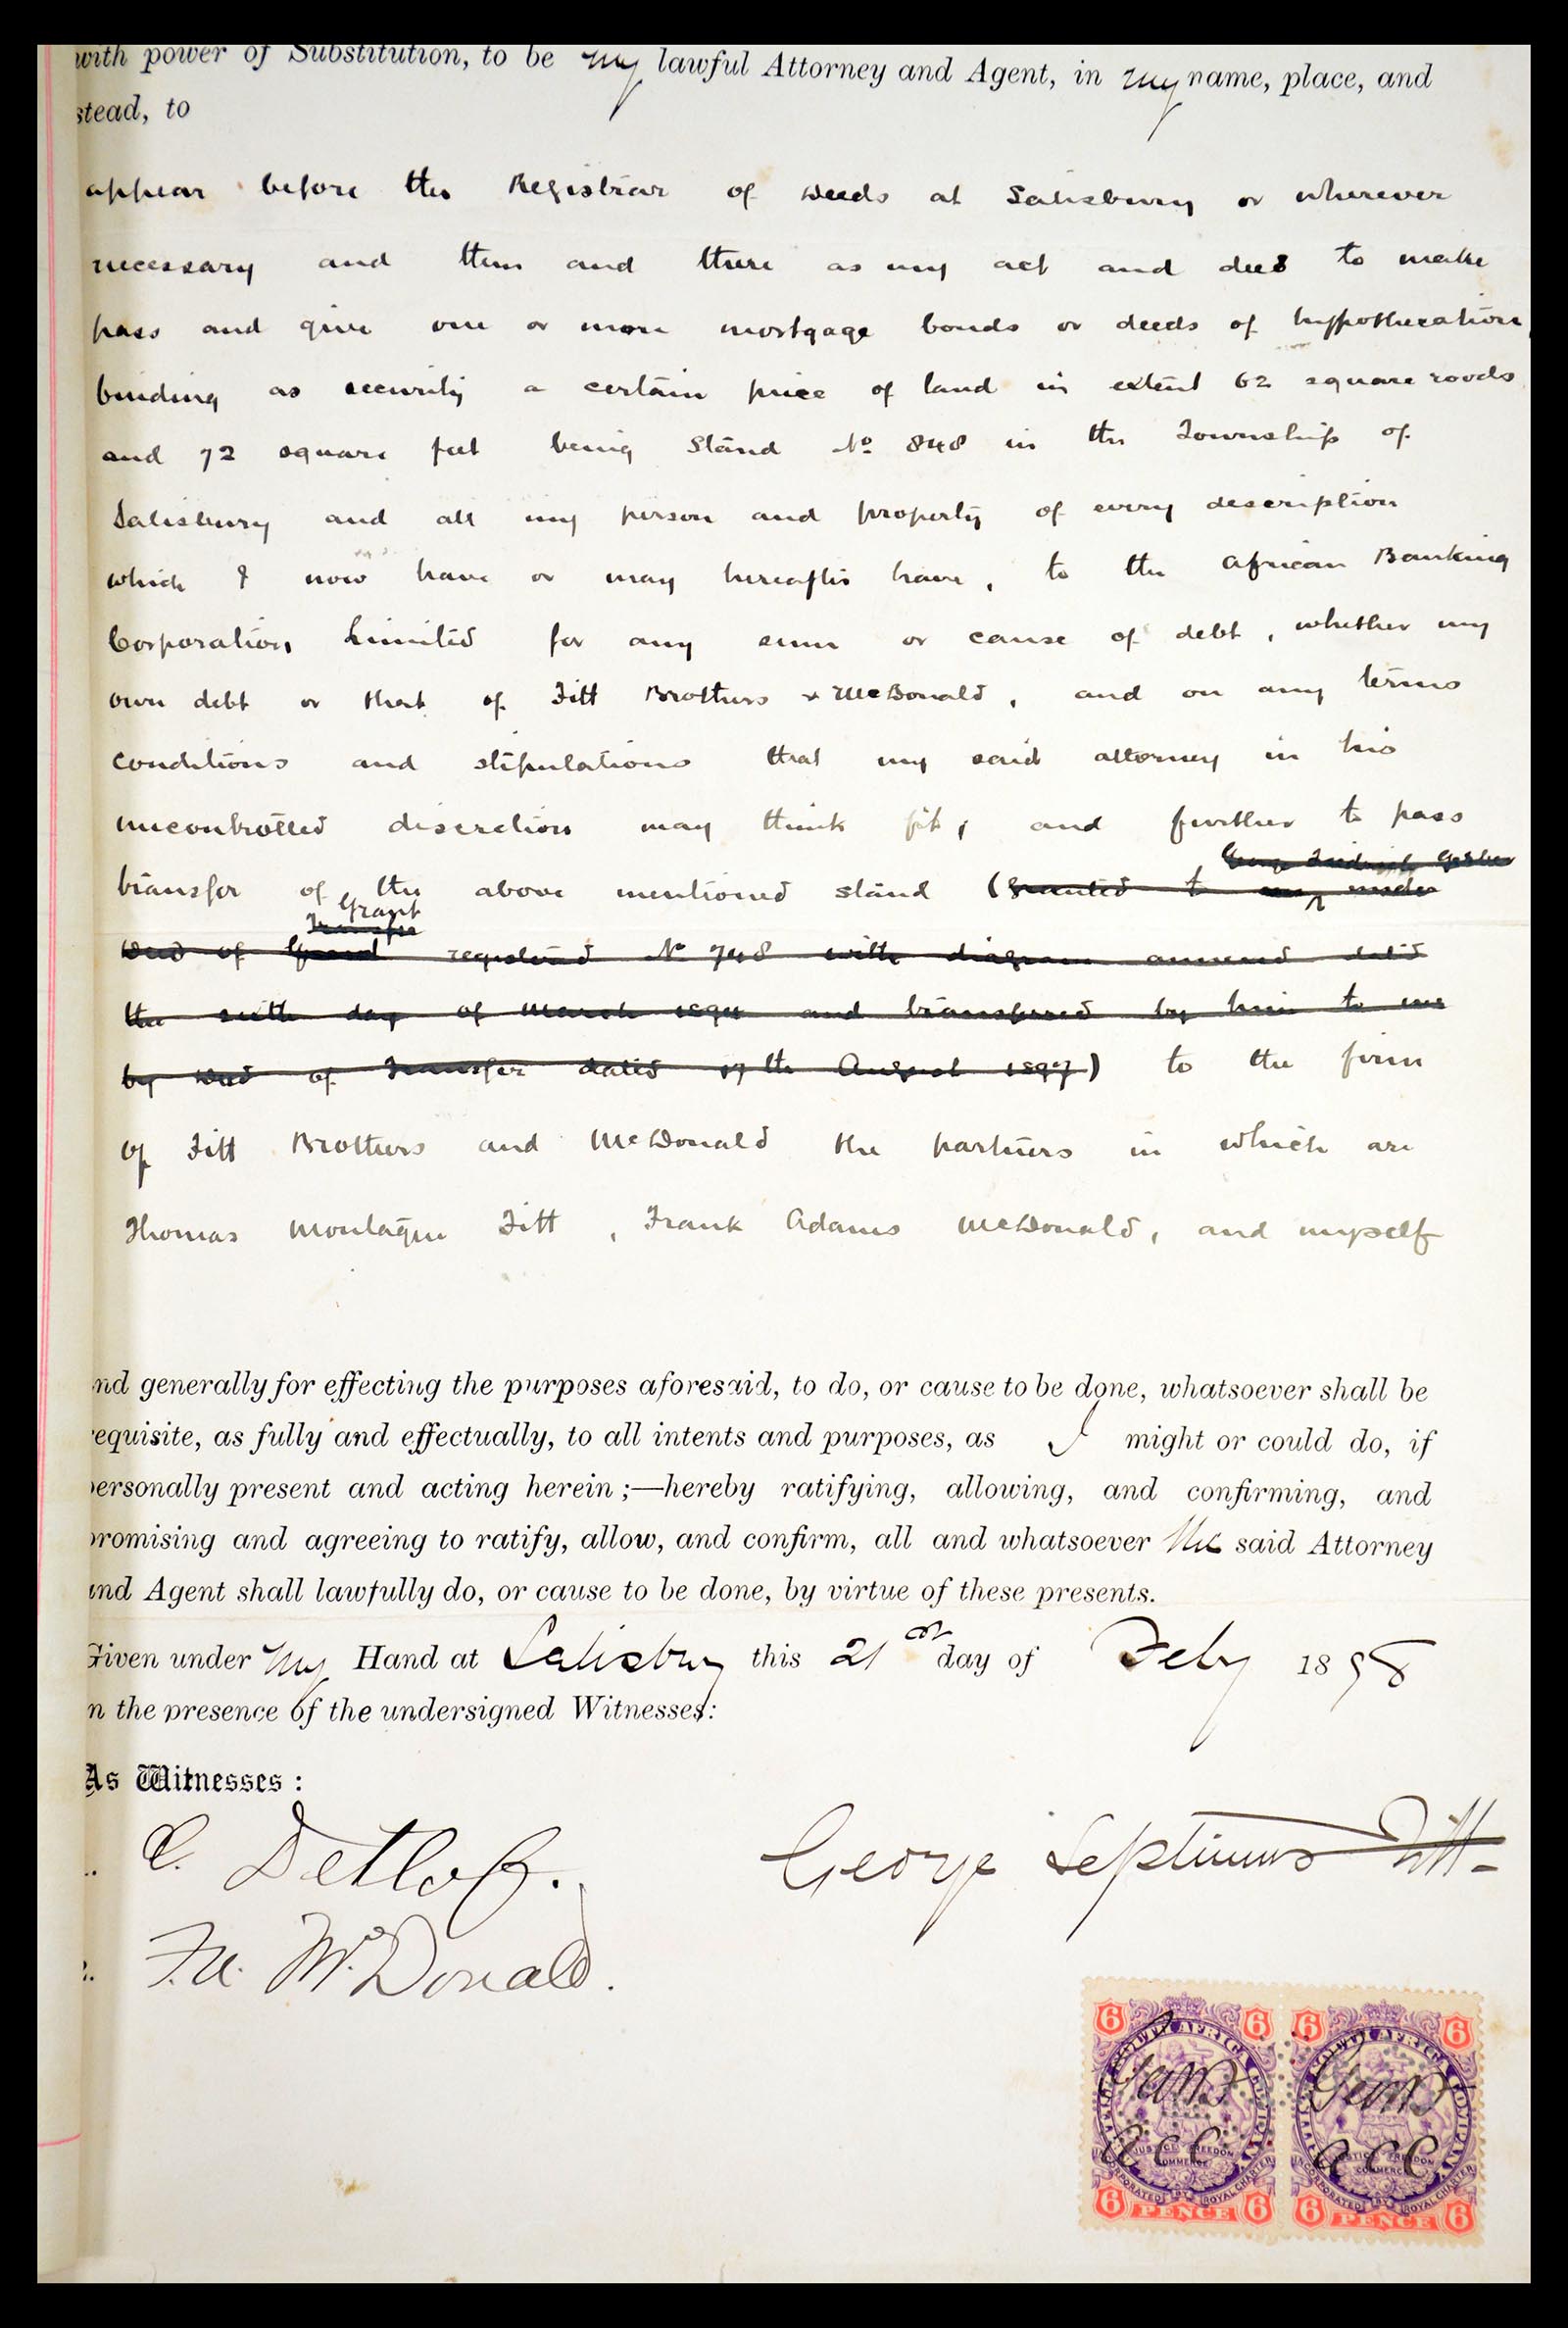 with power of Substitution, to be my lawful Attorney and Agent, in my name, place, and
stead, to
appear before the Registrar of Deeds at Salisbury or wherever
necessary and then and there as my act and deed to make
pass and give one or more mortgage bonds or deeds of hypothecation
binding as security a certain piece of land in extent 62 square roods
and 72 square feet being Stand No 848 in the Township of
Salisbury and all my person and property of every description
which I now have or may hereafter have, to the African Banking
Corporation Limited for any sum or cause of debt, whether my
own debt or that of Fitt Brothers & McDonald, and on any terms
conditions and stipulations that my said attorney in his
uncontrolled discretion may think fit, and further to pass
George
transfer of the above mentioned stand (Granted to my under
Grant
Transfer
Deed of Grant registered No 748 with diagram annexed dated
the sixth day of March 1894 and transferred by him to me
by Deed of Transfer dated 17th August 1897) to the firm
of Fitt Brothers and McDonald the partners in which are
Thomas Montague Fitt, Frank Adams McDonald, and myself
nd generally for effecting the purposes aforesaid, to do, or cause to be done, whatsoever shall be
equisite, as fully and effectually, to all intents and purposes, as I might or could do, if
ersonally present and acting herein;—hereby ratifying, allowing, and confirming, and
romising and agreeing to ratify, allow, and confirm, all and whatsoever the said Attorney
and Agent shall lawfully do, or cause to be done, by virtue of these presents.
Given under my Hand at Salisbury this 21st day of Feby 1898
n the presence of the undersigned Witnesses:
As Witnesses:
C. Detlof.
George Septimus Fitt
F.A. McDonald.
6 6 6 6
SOUTH AFRICA COMPANY SOUTH AFRICA COMPANY
JUSTICE FREEDOM COMMERCE JUSTICE FREEDOM COMMERCE
INCORPORATED BY ROYAL CHARTER INCORPORATED BY ROYAL CHARTER
6 PENCE 6 6 PENCE 6